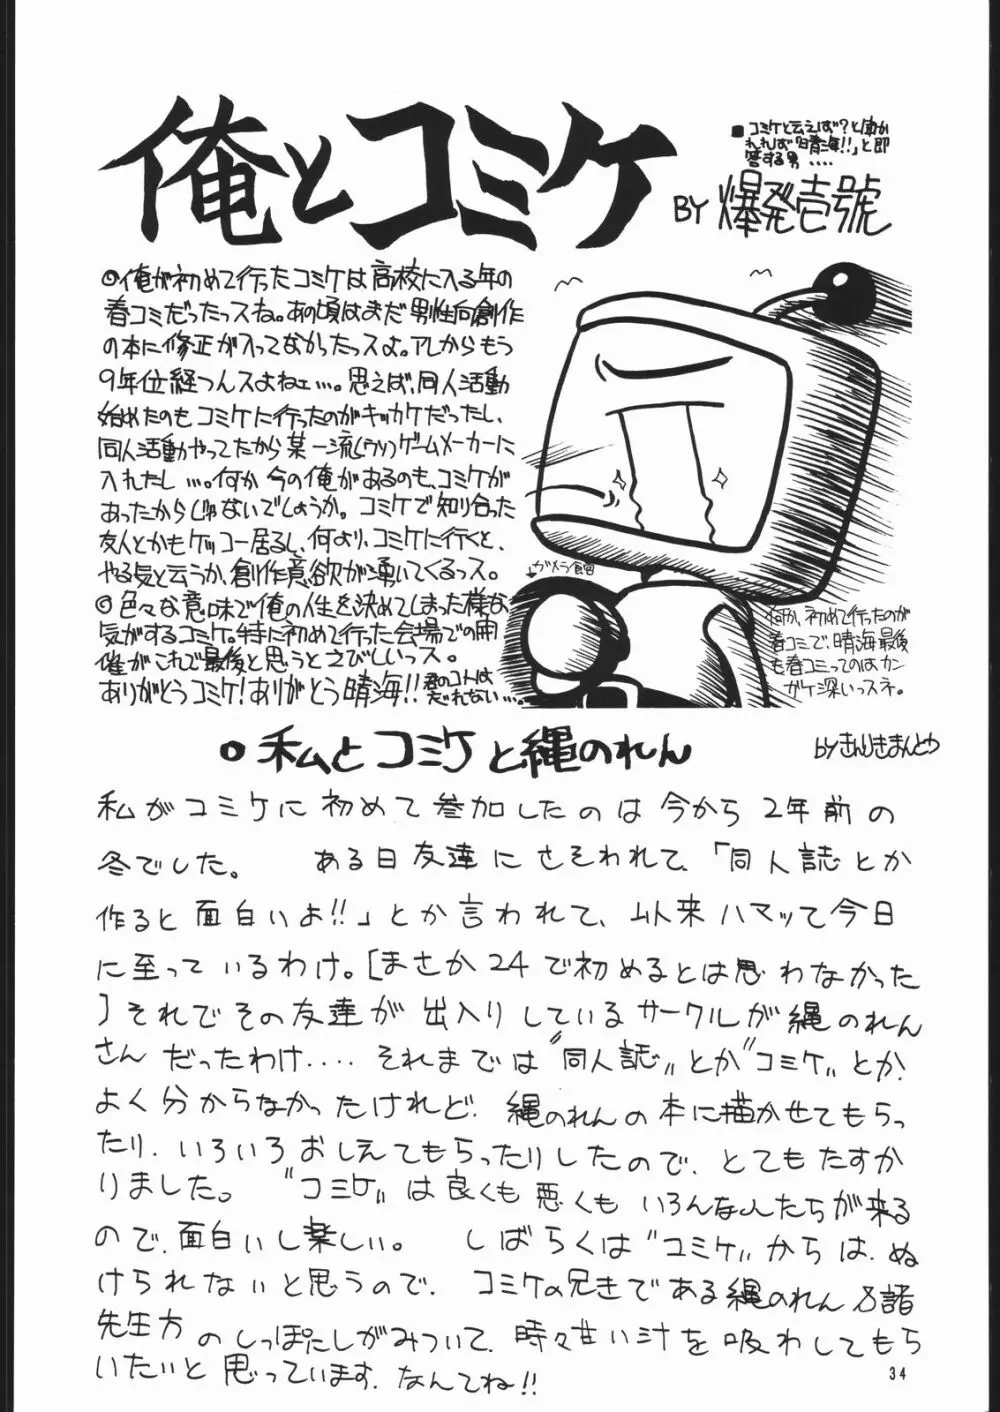 俺とコミケ
■コミケと云えば?と聞か
れれば「晴海!!」と即
答する男....
BY 爆発壱號
◎俺が初めて行ったコミケは高校に入る年の
春コミだったっスね。あの頃はまだ男性向創作
の本に修正が入ってなかったっスよ。アレからもう
9年位経つんスよねェ...。思えば、同人活動
始めたのもコミケに行ったのがキッカケだったし、
同人活動やってたから某一流(ウソ)ゲームメーカーに
入れたし...。何か今の俺があるのも、コミケが
あったからじゃないでしょうか。コミケで知り合った
友人とかもケッコー居るし、何より、コミケに行くと、
やる気と云うか、創作意欲が湧いてくるっス。
◎色々な意味で俺の人生を決めてしまった様な
気がするコミケ。特に初めて行った会場での開
催がこれで最後と思うとさびしいっス。
ありがとうコミケ!ありがとう晴海!!君のコトは
忘れない...。
↓ガメラ館
何か、初めて行ったのが
春コミで、晴海最後
も春コミってのはカン
ガケ深いっスネ。
◎私とコミケと縄のれん
byきんじきまんとひ
私がコミケに初めて参加したのは今から2年前の
冬でした。 ある日友達にさそわれて、「同人誌とか
作ると面白いよ!!」とか言われて、以来ハマッて今日
に至っているわけ。[まさか24で初めるとは思わなかった
]それでその友達が出入りしているサークルが縄のれん
さんだったわけ.... それまでは"同人誌"とか"コミケ"とか、
よく分からなかったけれど、縄のれんの本に描かせてもらっ
たり、いろいろおしえてもらったりしたので、とてもたすか
りました。 "コミケ"は良くも悪くもいろんな人たちが来る
ので、面白いし楽しい。 しばらくは"コミケ"からは、ぬ
けられないと思うので、コミケの兄きである縄のれん&諸
先生方のしっぽにしがみついて、時々甘い汁を吸わしてもら
いたいと思っています、なんてね!!
34